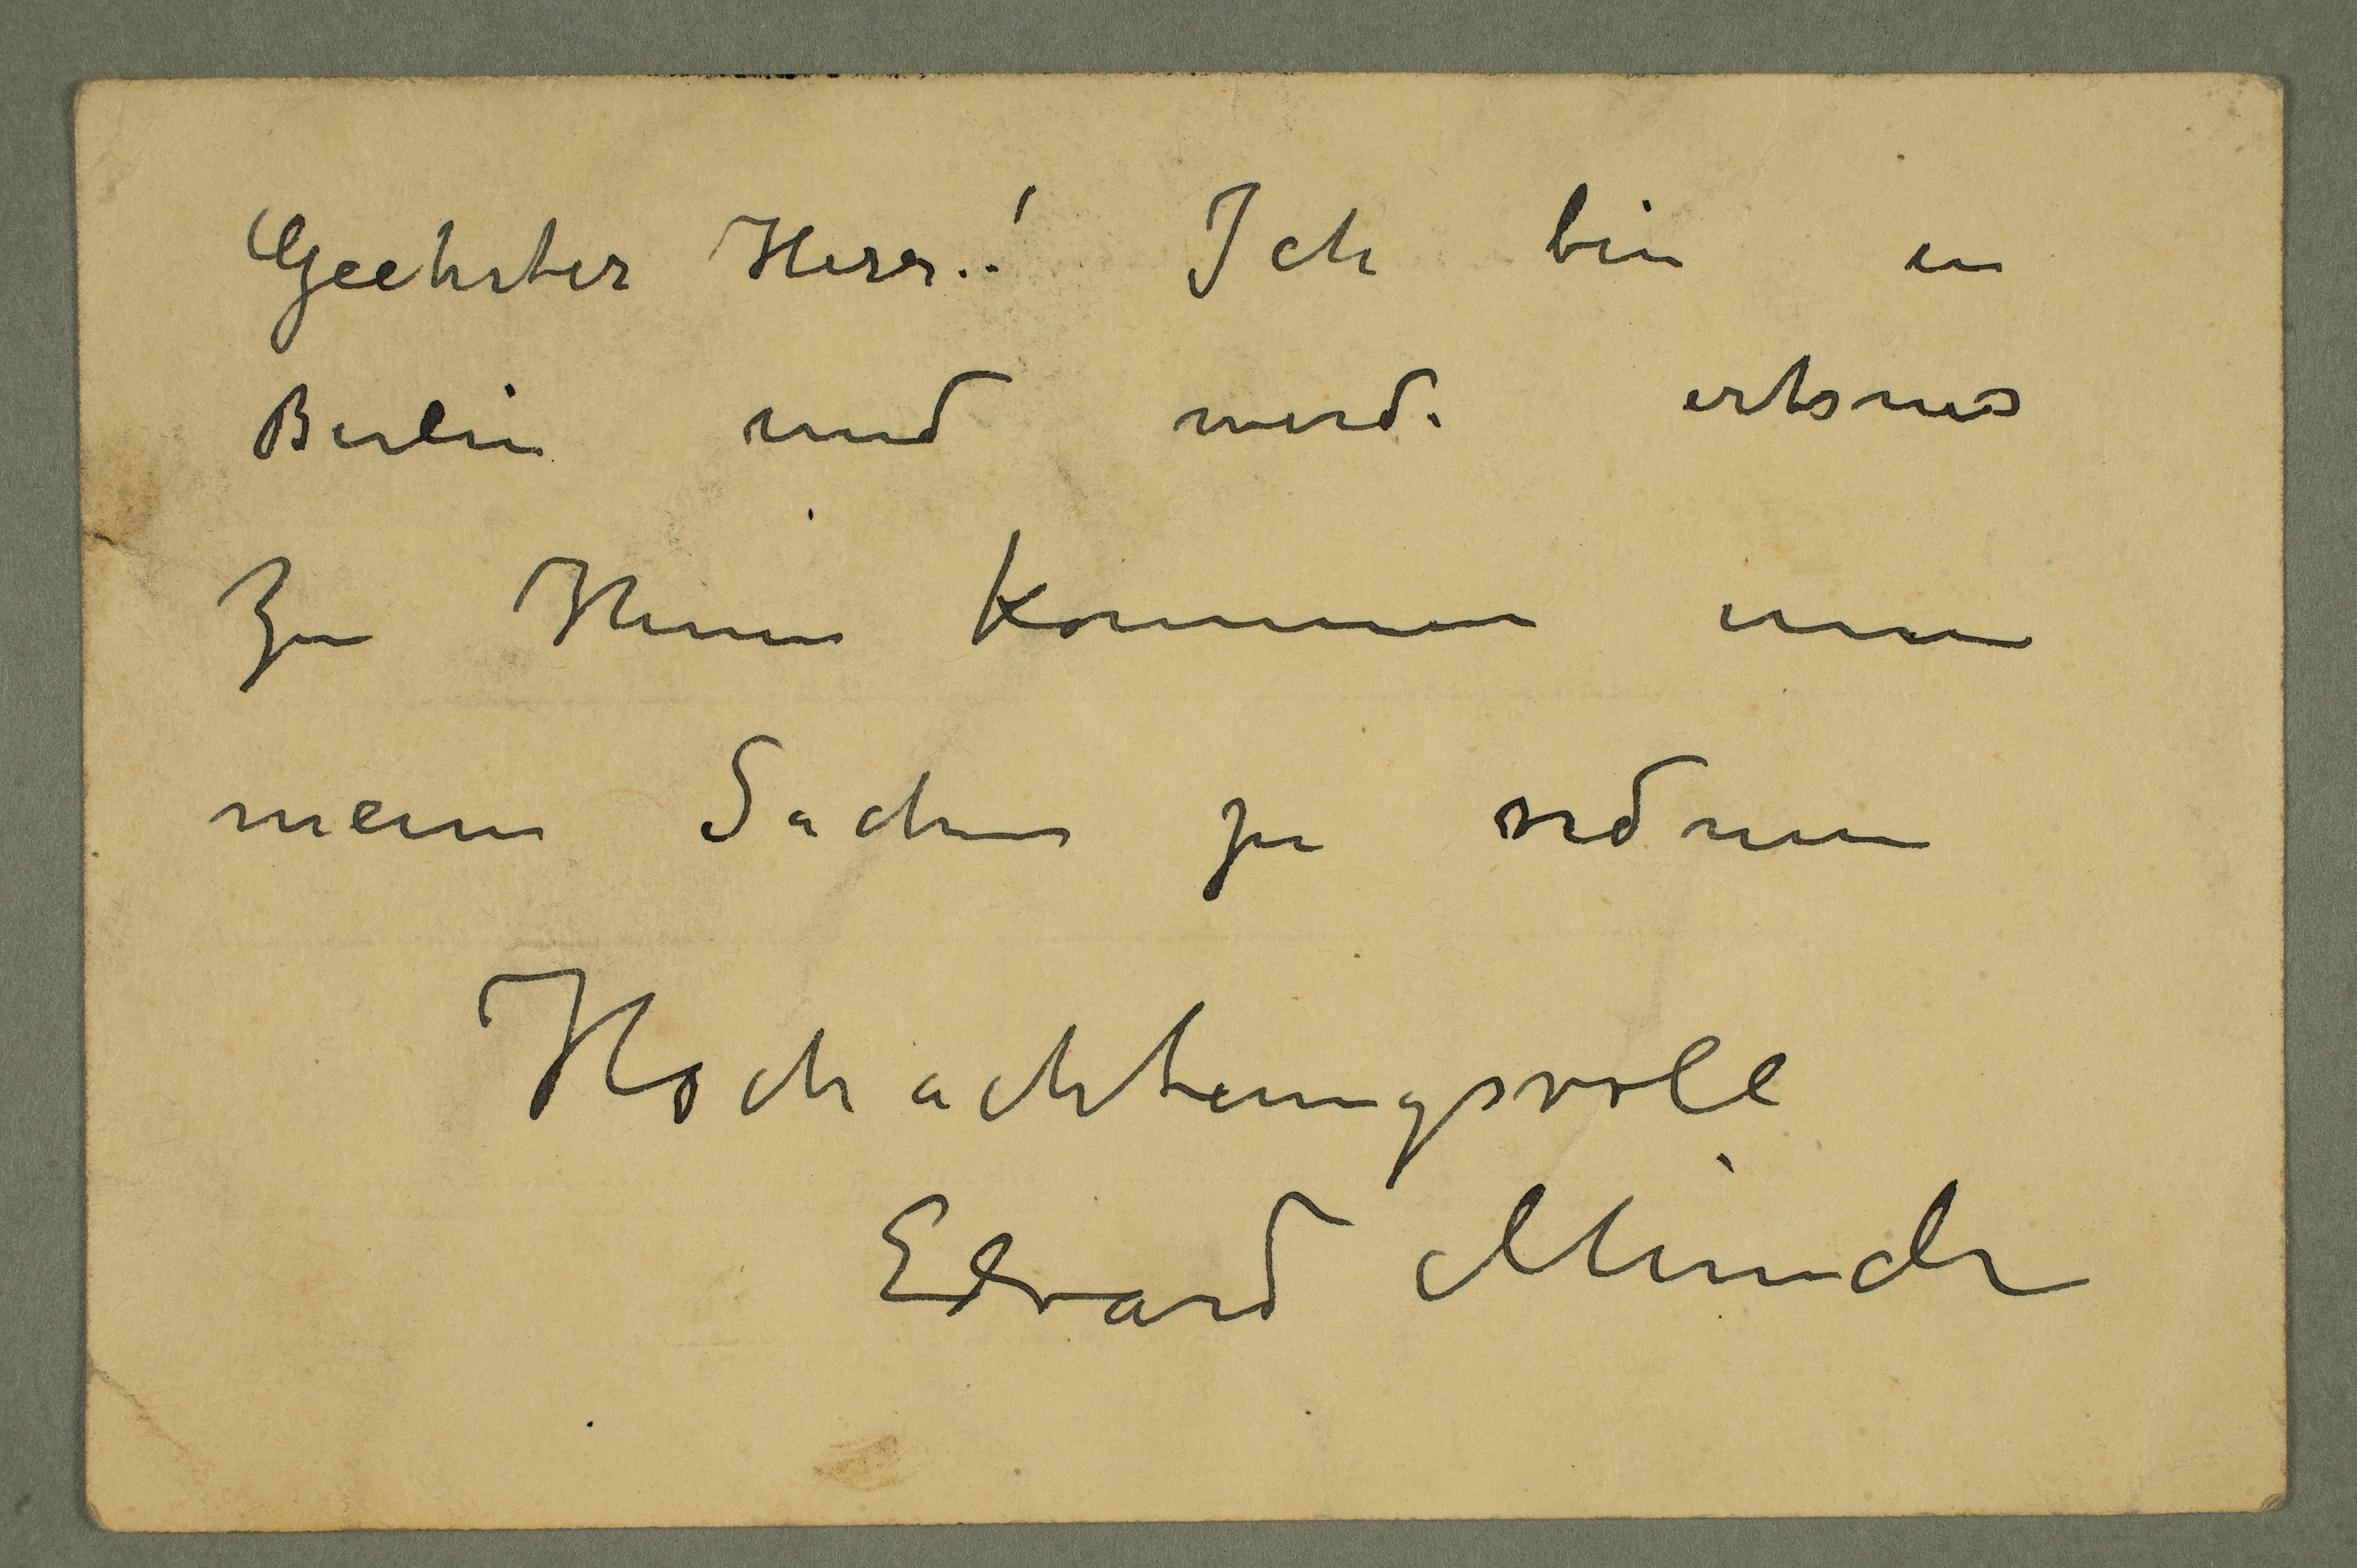 Geehrter Herr! Ich bin in
Berlin und werde
Zu Ihnen kommen um
meine Sachen zu ordnen
Hochachtungsvoll
Edvard Munch